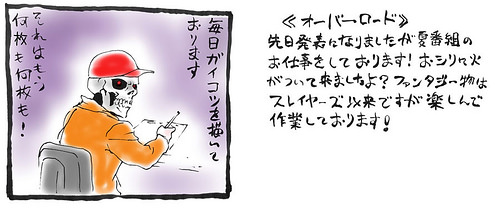 毎日ガイコツを描いて
おります
それはもう
何枚も何枚も!
≪オーバーロード≫
先日発表になりましたが夏番組の
お仕事をしております!おシリに火
がついて来ましたよ?ファンタジー物は
スレイヤーズ以来ですが楽しんで
作業しております!